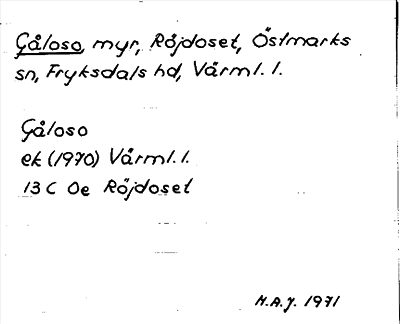 Gåloso, myr, Röjdoset, Östmarks
sn, Fryksdals hd, Värml. l.
Gåloso
ek (1970) Värml. l.
13 C 0e Röjdoset
H.A.J. 1971